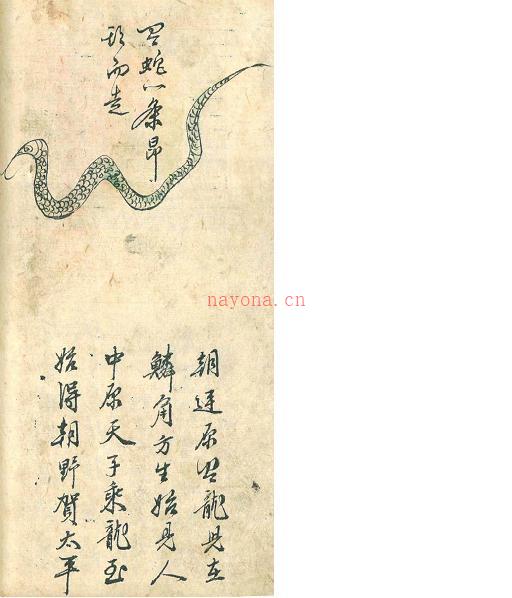 蛇一条昂
頭而走
朝廷原龍見在
鱗角方生始見人
中原天子乘龍至
始得朝野賀太平
nayona.cn